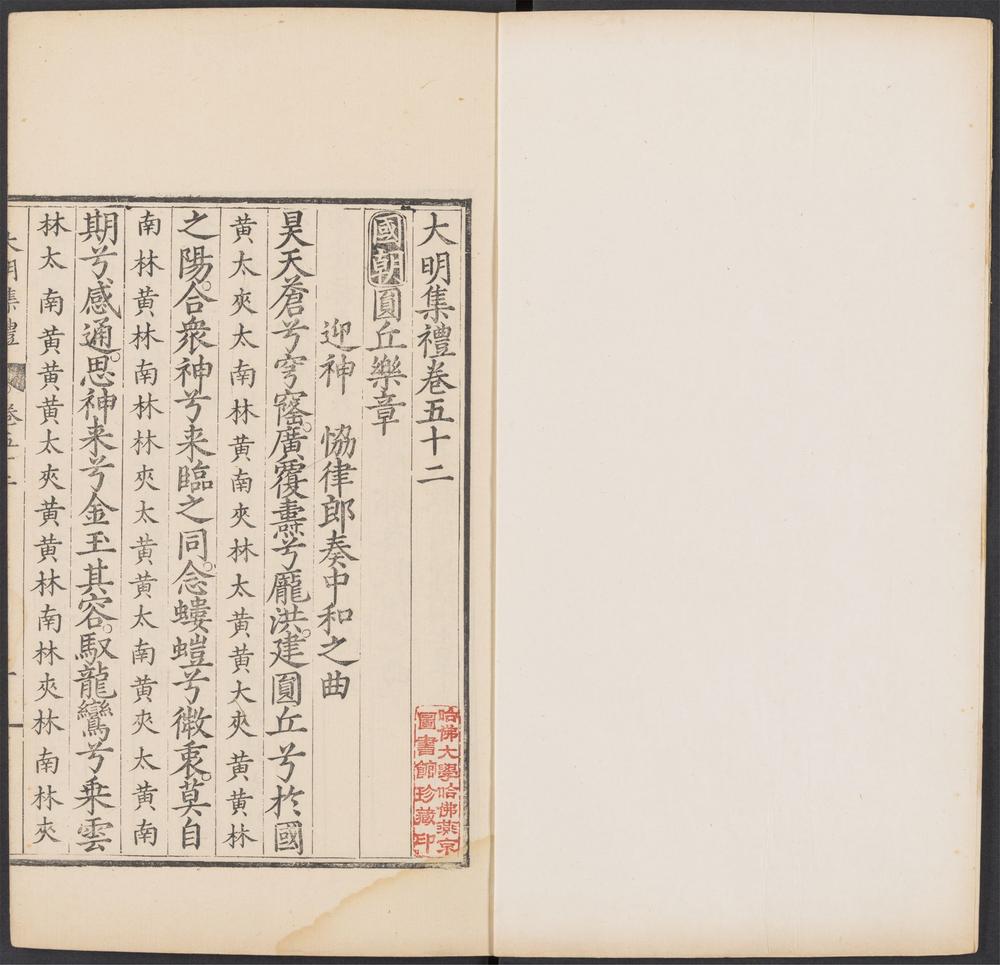 大明集禮卷五十二
國朝圓丘樂章
迎神　協律郎奏中和之曲
昊天蒼兮穹窿。廣覆燾兮龐洪。建圓丘兮於國
黄太夾太南林黄南夾林太黄黄大夾黄黄林
之陽。合衆神兮来臨之同。念螻螘兮微衷。莫自
南林黄林南林林夾太黄黄太南黄夾太黄南
期兮感通。思神来兮金玉其容。馭龍鸞兮乗雲
林太南黄黄黄太夾黄黄林南林夾林南林夾
大明集禮 卷五十二 一
哈佛大學哈佛燕京
圖書館珍藏印